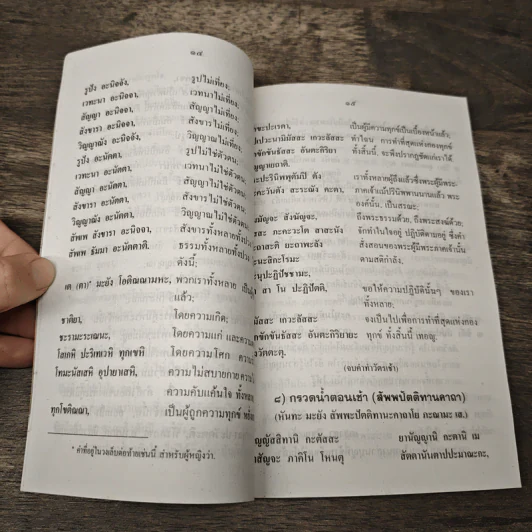 ๑๔
รูปัง อะนิจจัง, รูปไม่เที่ยง;
เวทะนา อะนิจจา, เวทนาไม่เที่ยง;
สัญญา อะนิจจา, สัญญาไม่เที่ยง;
สังขารา อะนิจจา, สังขารไม่เที่ยง;
วิญญาณัง อะนิจจัง, วิญญาณไม่เที่ยง;
รูปัง อะนัตตา, รูปไม่ใช่ตัวตน;
เวทะนา อะนัตตา, เวทนาไม่ใช่ตัวตน;
สัญญา อะนัตตา, สัญญาไม่ใช่ตัวตน;
สังขารา อะนัตตา, สังขารไม่ใช่ตัวตน;
วิญญาณัง อะนัตตา, วิญญาณไม่ใช่ตัวตน;
สัพเพ สังขารา อะนิจจา, สังขารทั้งหลายทั้งปวง
สัพเพ ธัมมา อะนัตตาติ. ธรรมทั้งหลายทั้งปวง
ดังนี้;
เต (ตา)* มะยัง โอติณณามหะ, พวกเราทั้งหลาย เป็น
แล้ว;
ชาติยา, โดยความเกิด;
ชะรามะระเณนะ, โดยความแก่ และความ
โสเกหิ ปะริเทเวหิ ทุกเขหิ โดยความโศก ความ
โทมะนัสเสหิ อุปายาเสหิ, ความไม่สบายกาย ความ
ความคับแค้นใจ ทั้งหลาย
ทุกโขติณณา, เป็นผู้ถูกความทุกข์ หยั่ง
* คำที่อยู่ในวงเล็บต่อท้ายเช่นนี้ สำหรับผู้หญิงว่า.
๑๕
ขะปะเรตา, เป็นผู้มีความทุกข์เป็นเบื้องหน้าแล้ว;
เกวะลัสสะ ทำไฉน การทำที่สุดแห่งกองทุกข์
กขักขันธัสสะ อันตะกิริยา ทั้งสิ้นนี้, จะพึงปรากฏชัดแก่เราได้
ญาเยถาติ.
ะปะรินิพพุตัมปิ ตัง เราทั้งหลายผู้ถึงแล้วซึ่งพระผู้มีพระ
คะวันตัง สะระณัง คะตา, ภาคเจ้าแม้ปรินิพพานนานแล้ว พระ
องค์นั้น, เป็นสรณะ;
มมัญจะ สังฆัญจะ, ถึงพระธรรมด้วย, ถึงพระสงฆ์ด้วย;
ภะคะวะโต สาสะนัง จักทำในใจอยู่ ปฏิบัติตามอยู่ ซึ่งคำ
ยะถาพะลัง สั่งสอนของพระผู้มีพระภาคเจ้านั้น
มะนะสิกะโรมะ ตามสติกำลัง.
นุปะฏิปัชชามะ,
สา โน ปะฏิปัตติ, ขอให้ความปฏิบัตินั้นๆ ของเรา
ทั้งหลาย;
มัสสะ เกวะลัสสะ จงเป็นไปเพื่อการทำที่สุดแห่งกอง
กขักขันธัสสะ อันตะกิริยายะ ทุกข์ ทั้งสิ้นนี้ เทอญ.
งวัตตะตุ.
(จบคำทำวัตรเช้า)
๘) กรวดน้ำตอนเช้า (สัพพปัตติทานคาถา)
(หันทะ มะยัง สัพพะปัตติทานะคาถาโย ภะณามะ เส.)
ญญัสสิทานิ กะตัสสะ ยานัญญานิ กะตานิ เม
สัญจะ ภาคิโน โหนตุ สัตตานันตาปปะมาณะกะ,